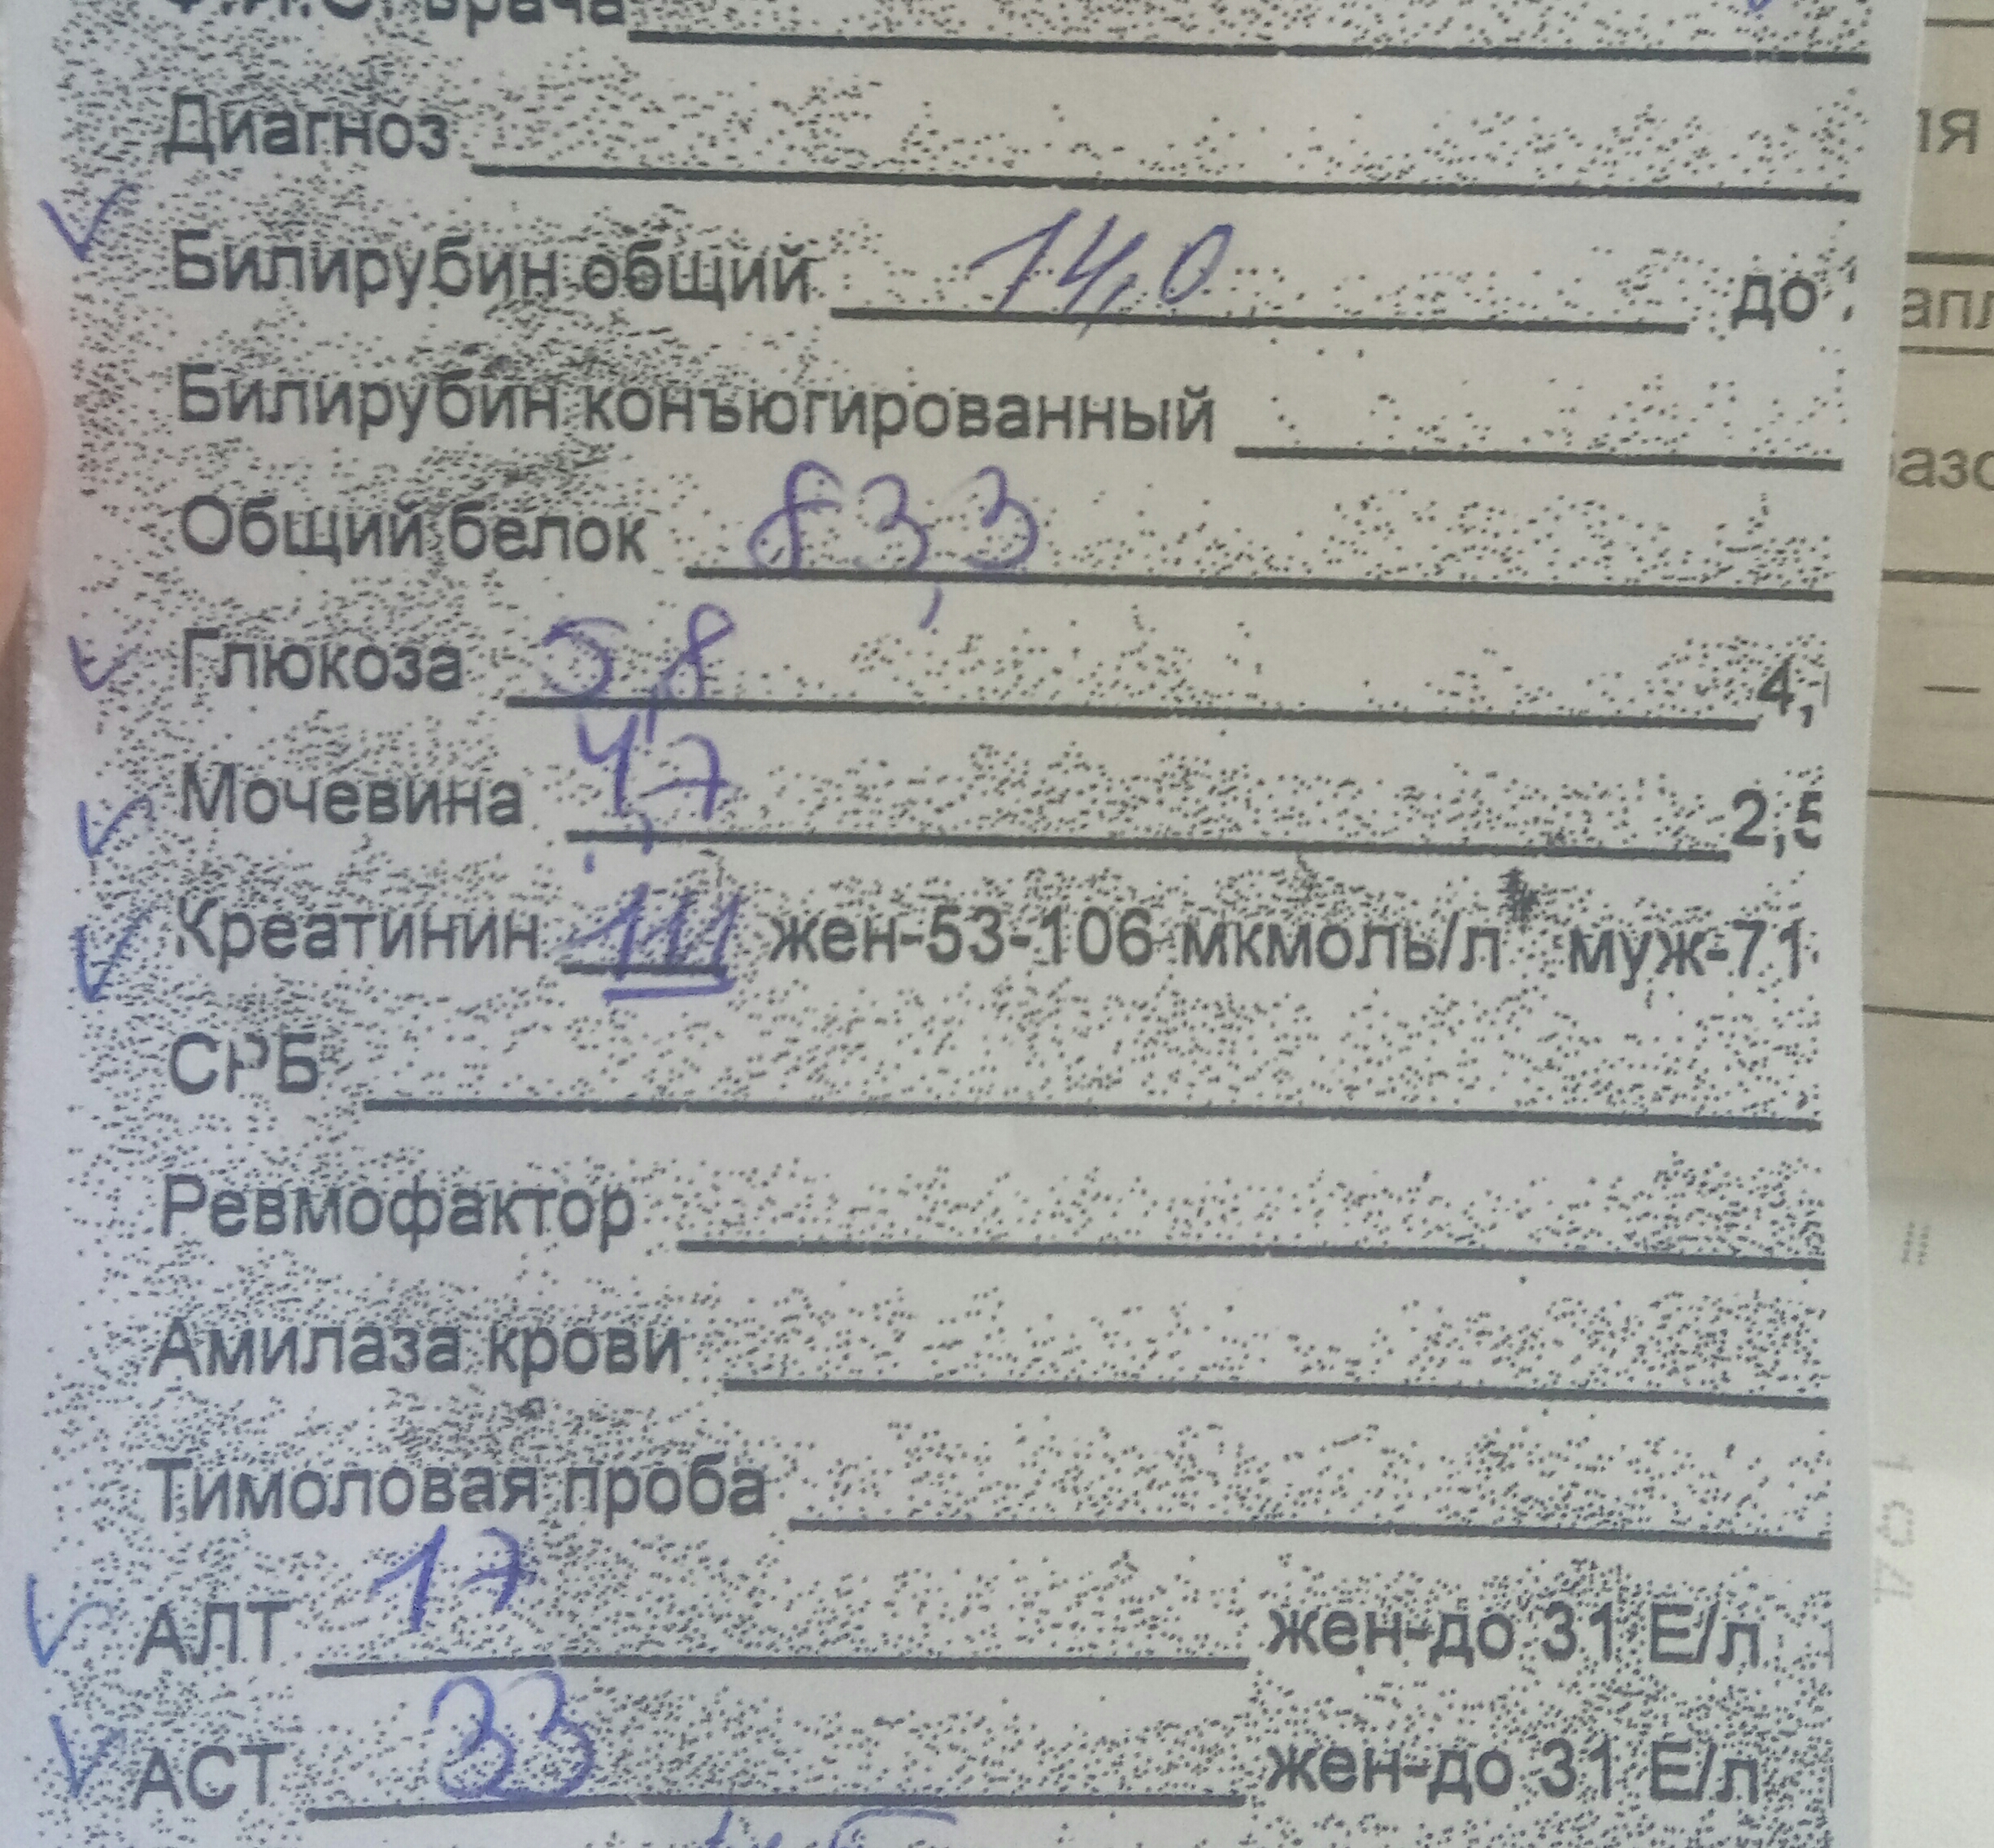 врача
Диагноз
Билирубин общий 14,0 до
Билирубин конъюгированный
Общий белок 83,3
Глюкоза 5,8 4,
Мочевина 4,7 2,5
Креатинин 111 жен-53-106 мкмоль/л муж-71
СРБ
Ревмофактор
Амилаза крови
Тимоловая проба
АЛТ 17 жен-до 31 Е/л
АСТ 33 жен-до 31 Е/л